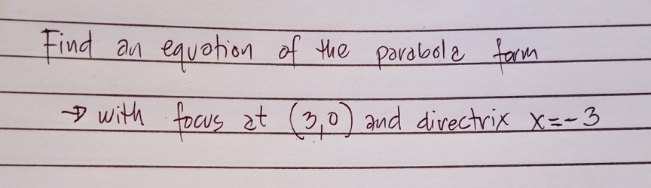 Find an equation of the parabola form
→ with focus at (3,0) and directrix x=-3